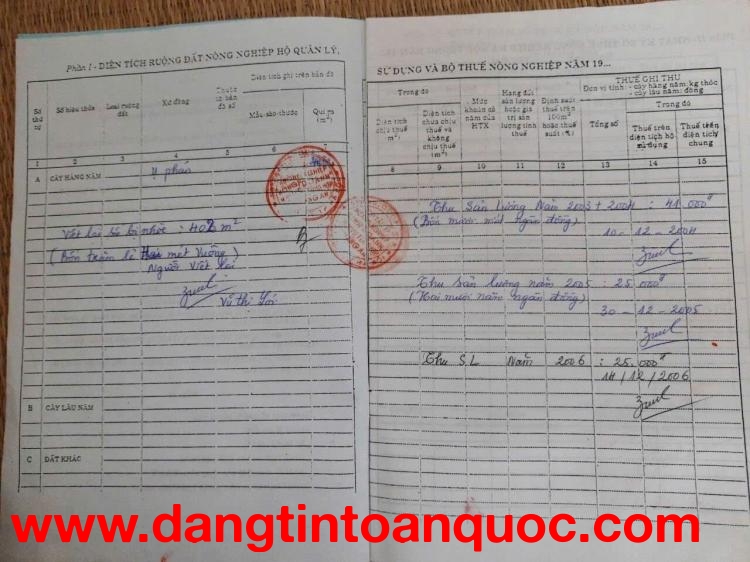 Phần I - DIỆN TÍCH RUỘNG ĐẤT NÔNG NGHIỆP HỘ QUẢN LÝ,
Số thứ tự
Số hiệu thửa
Loại ruộng đất
Xứ đồng
Thuộc tờ bản đồ số
Diện tích ghi trên bản đồ
Mẫu-sào-thước
Qui ra (m²)
1 2 3 4 5 6 7
A CÂY HÀNG NĂM
4 phần
Viết lại số bị nhòe : 402 m²
(Bốn trăm lẻ Hai mét vuông)
Người viết lại
Vũ thị Lới
B CÂY LÂU NĂM
C ĐẤT KHÁC
SỬ DỤNG VÀ BỘ THUẾ NÔNG NGHIỆP NĂM 19...
Trong đó
Diện tích chịu thuế m²)
Diện tích chưa chịu thuế và không chịu thuế (m²)
Mức khoán cả năm của HTX
Hạng đất; sản lượng hoặc giá trị sản lượng tính thuế
Định suất thuế trên 100m² hoặc thuế suất (%)
THUẾ GHI THU
Đơn vị tính: - cây hàng năm: kg thóc
- cây lâu năm: đồng
Tổng số
Trong đó
Thuế trên diện tích hộ sử dụng
Thuế trên diện tích chung
8 9 10 11 12 13 14 15
Thu Sản lượng Năm 2003 + 2004 : 41.000đ
(Bốn mươi mốt ngàn đồng)
10 - 12 - 2004
Thu sản lượng năm 2005 : 25.000đ
(Hai mươi năm ngàn đồng)
30 - 12 - 2005
Thu S.L Năm 2006 : 25.000đ
14/12/2006
www.dangtintoanquoc.com